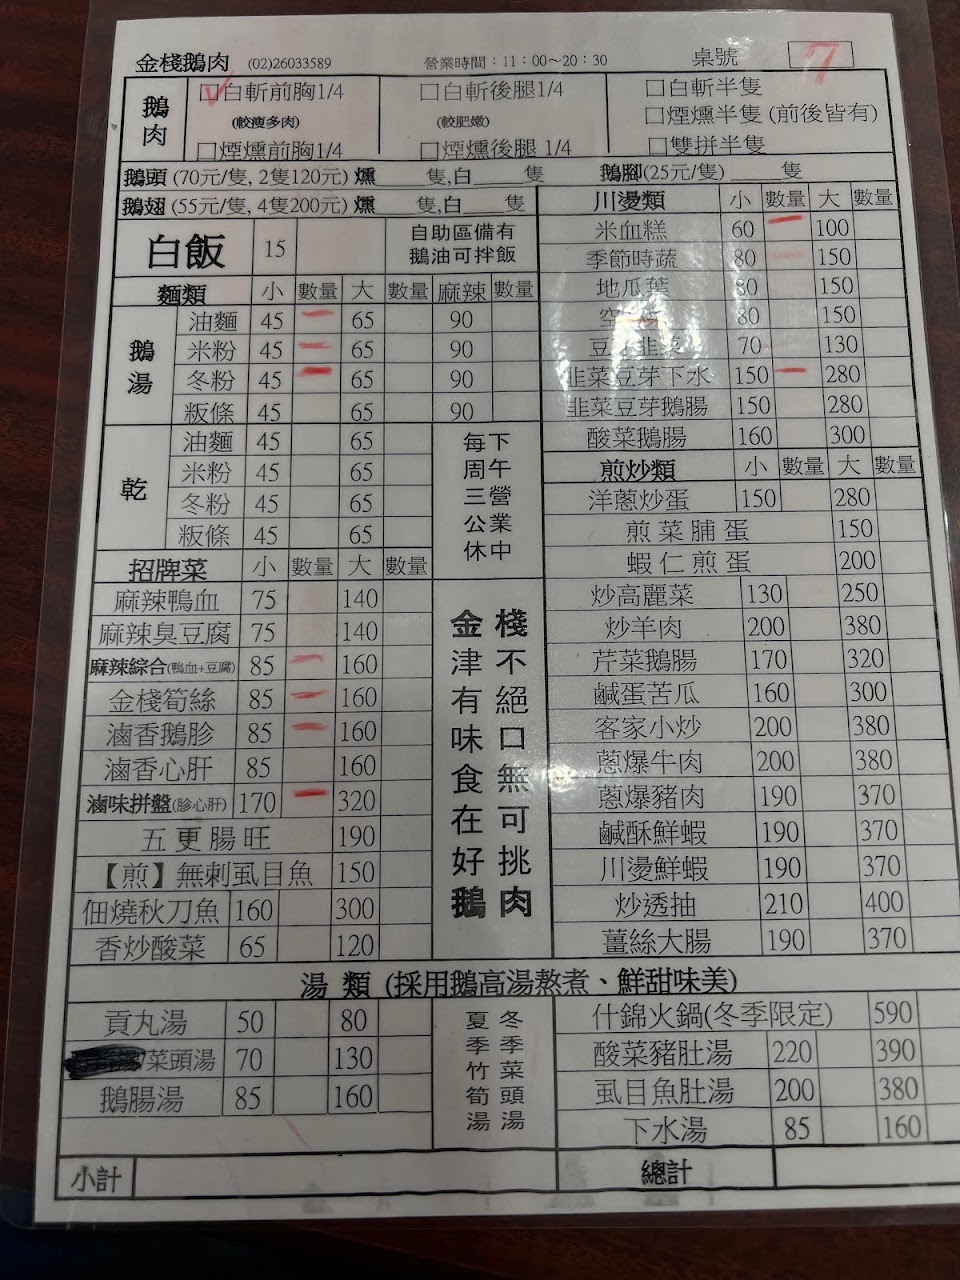 金棧鵝肉 (02)26033589 營業時間：11：00～20：30 桌號 7
鵝肉
☑白斬前胸1/4 □白斬後腿1/4 □白斬半隻
(較瘦多肉) (較肥嫩) □煙燻半隻 (前後皆有)
□煙燻前胸1/4 □煙燻後腿 1/4 □雙拼半隻
鵝頭 (70元/隻, 2隻120元) 燻____隻,白____隻 鵝腳(25元/隻)____隻
鵝翅 (55元/隻, 4隻200元) 燻____隻,白____隻
白飯 15 自助區備有
鵝油可拌飯
麵類 小 數量 大 數量 麻辣 數量
鵝湯
油麵 45 65 90
米粉 45 65 90
冬粉 45 65 90
粄條 45 65 90
乾
油麵 45 65
米粉 45 65
冬粉 45 65
粄條 45 65
每周三公休
下午營業中
招牌菜 小 數量 大 數量
麻辣鴨血 75 140
麻辣臭豆腐 75 140
麻辣綜合(鴨血+豆腐) 85 160
金棧筍絲 85 160
滷香鵝胗 85 160
滷香心肝 85 160
滷味拼盤(胗心肝) 170 320
五更腸旺 190
【煎】無刺虱目魚 150
佃燒秋刀魚 160 300
香炒酸菜 65 120
金津有味食在好鵝
棧不絕口無可挑肉
川燙類 小 數量 大 數量
米血糕 60 100
季節時蔬 80 150
地瓜葉 80 150
空 80 150
豆芽韭菜 70 130
韭菜豆芽下水 150 280
韭菜豆芽鵝腸 150 280
酸菜鵝腸 160 300
煎炒類 小 數量 大 數量
洋蔥炒蛋 150 280
煎菜脯蛋 150
蝦仁煎蛋 200
炒高麗菜 130 250
炒羊肉 200 380
芹菜鵝腸 170 320
鹹蛋苦瓜 160 300
客家小炒 200 380
蔥爆牛肉 200 380
蔥爆豬肉 190 370
鹹酥鮮蝦 190 370
川燙鮮蝦 190 370
炒透抽 210 400
薑絲大腸 190 370
湯 類 (採用鵝高湯熬煮、鮮甜味美)
貢丸湯 50 80
菜頭湯 70 130
鵝腸湯 85 160
夏季竹筍湯
冬季菜頭湯
什錦火鍋(冬季限定) 590
酸菜豬肚湯 220 390
虱目魚肚湯 200 380
下水湯 85 160
小計 總計